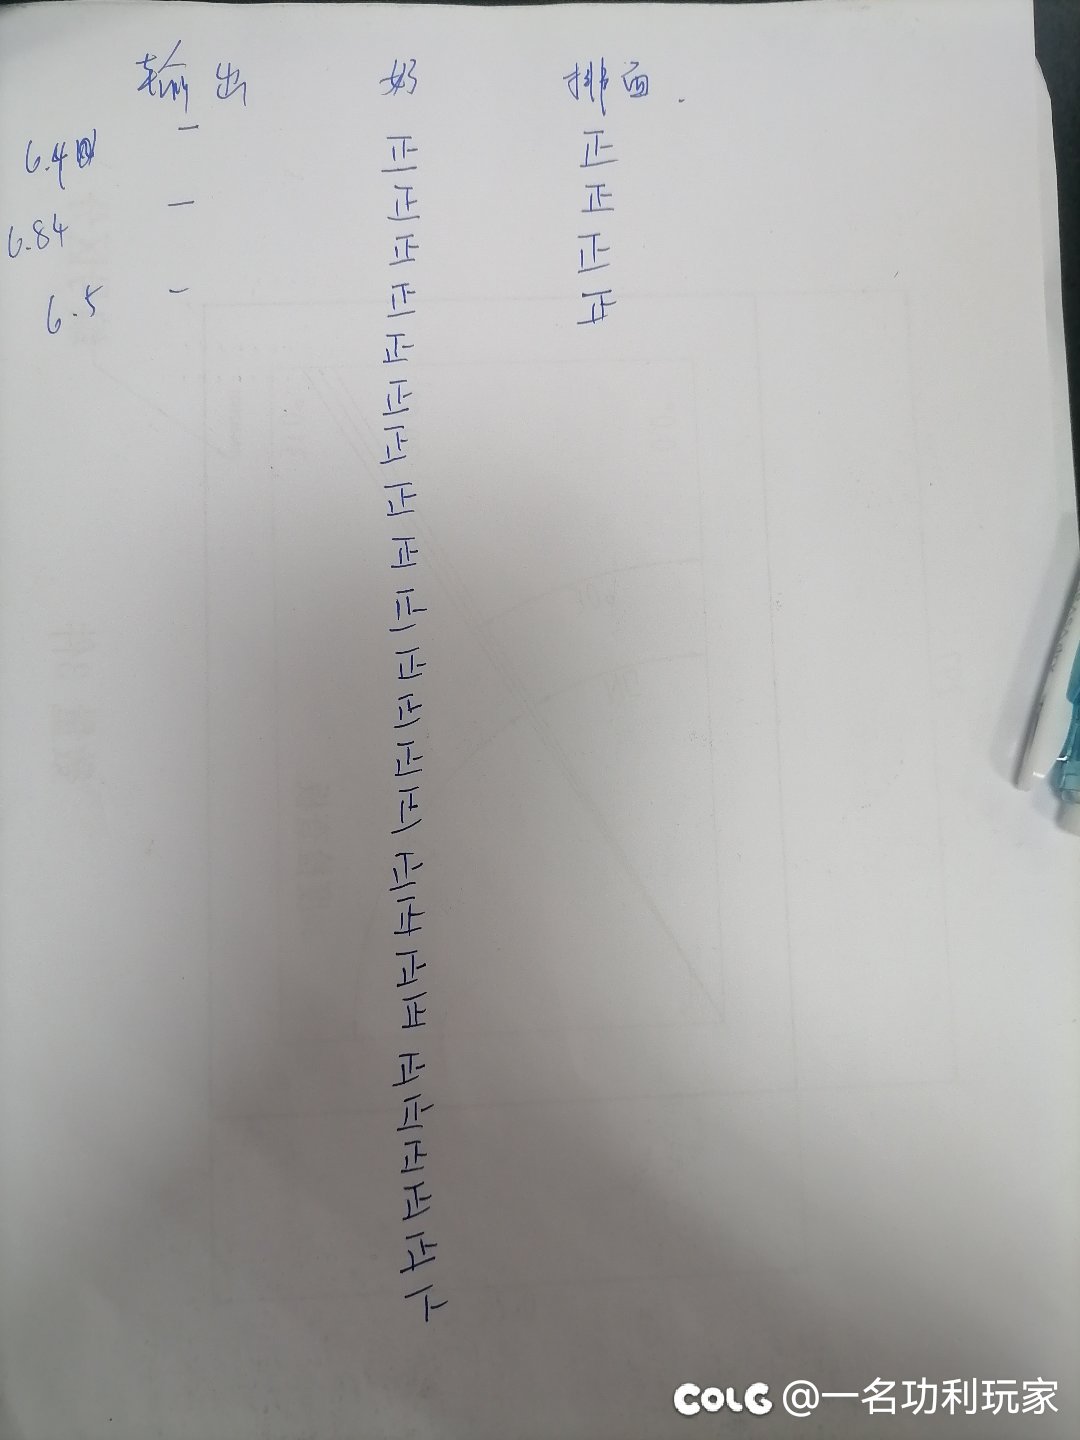 输出 奶 排面.
6.4 一 正 正
6.84 一 正 正
正 正
6.5 一 正 正
正
正
正
正
正
正
正
正
正
正
正
正
正
正
正
正
正
正
正
COLG @一名功利玩家